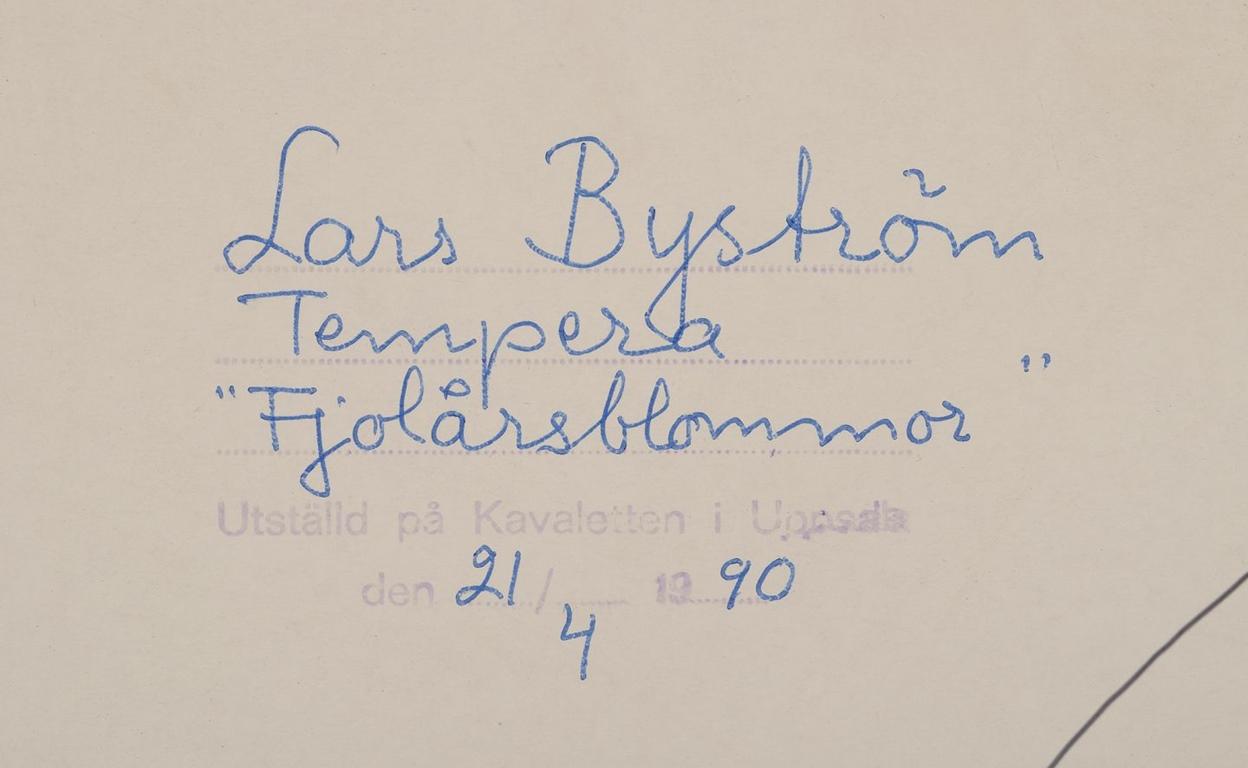 Lars Byström
Tempera
"Fjolårsblommor"
Utställd på Kavaletten i Uppsala
den 21/4 1990